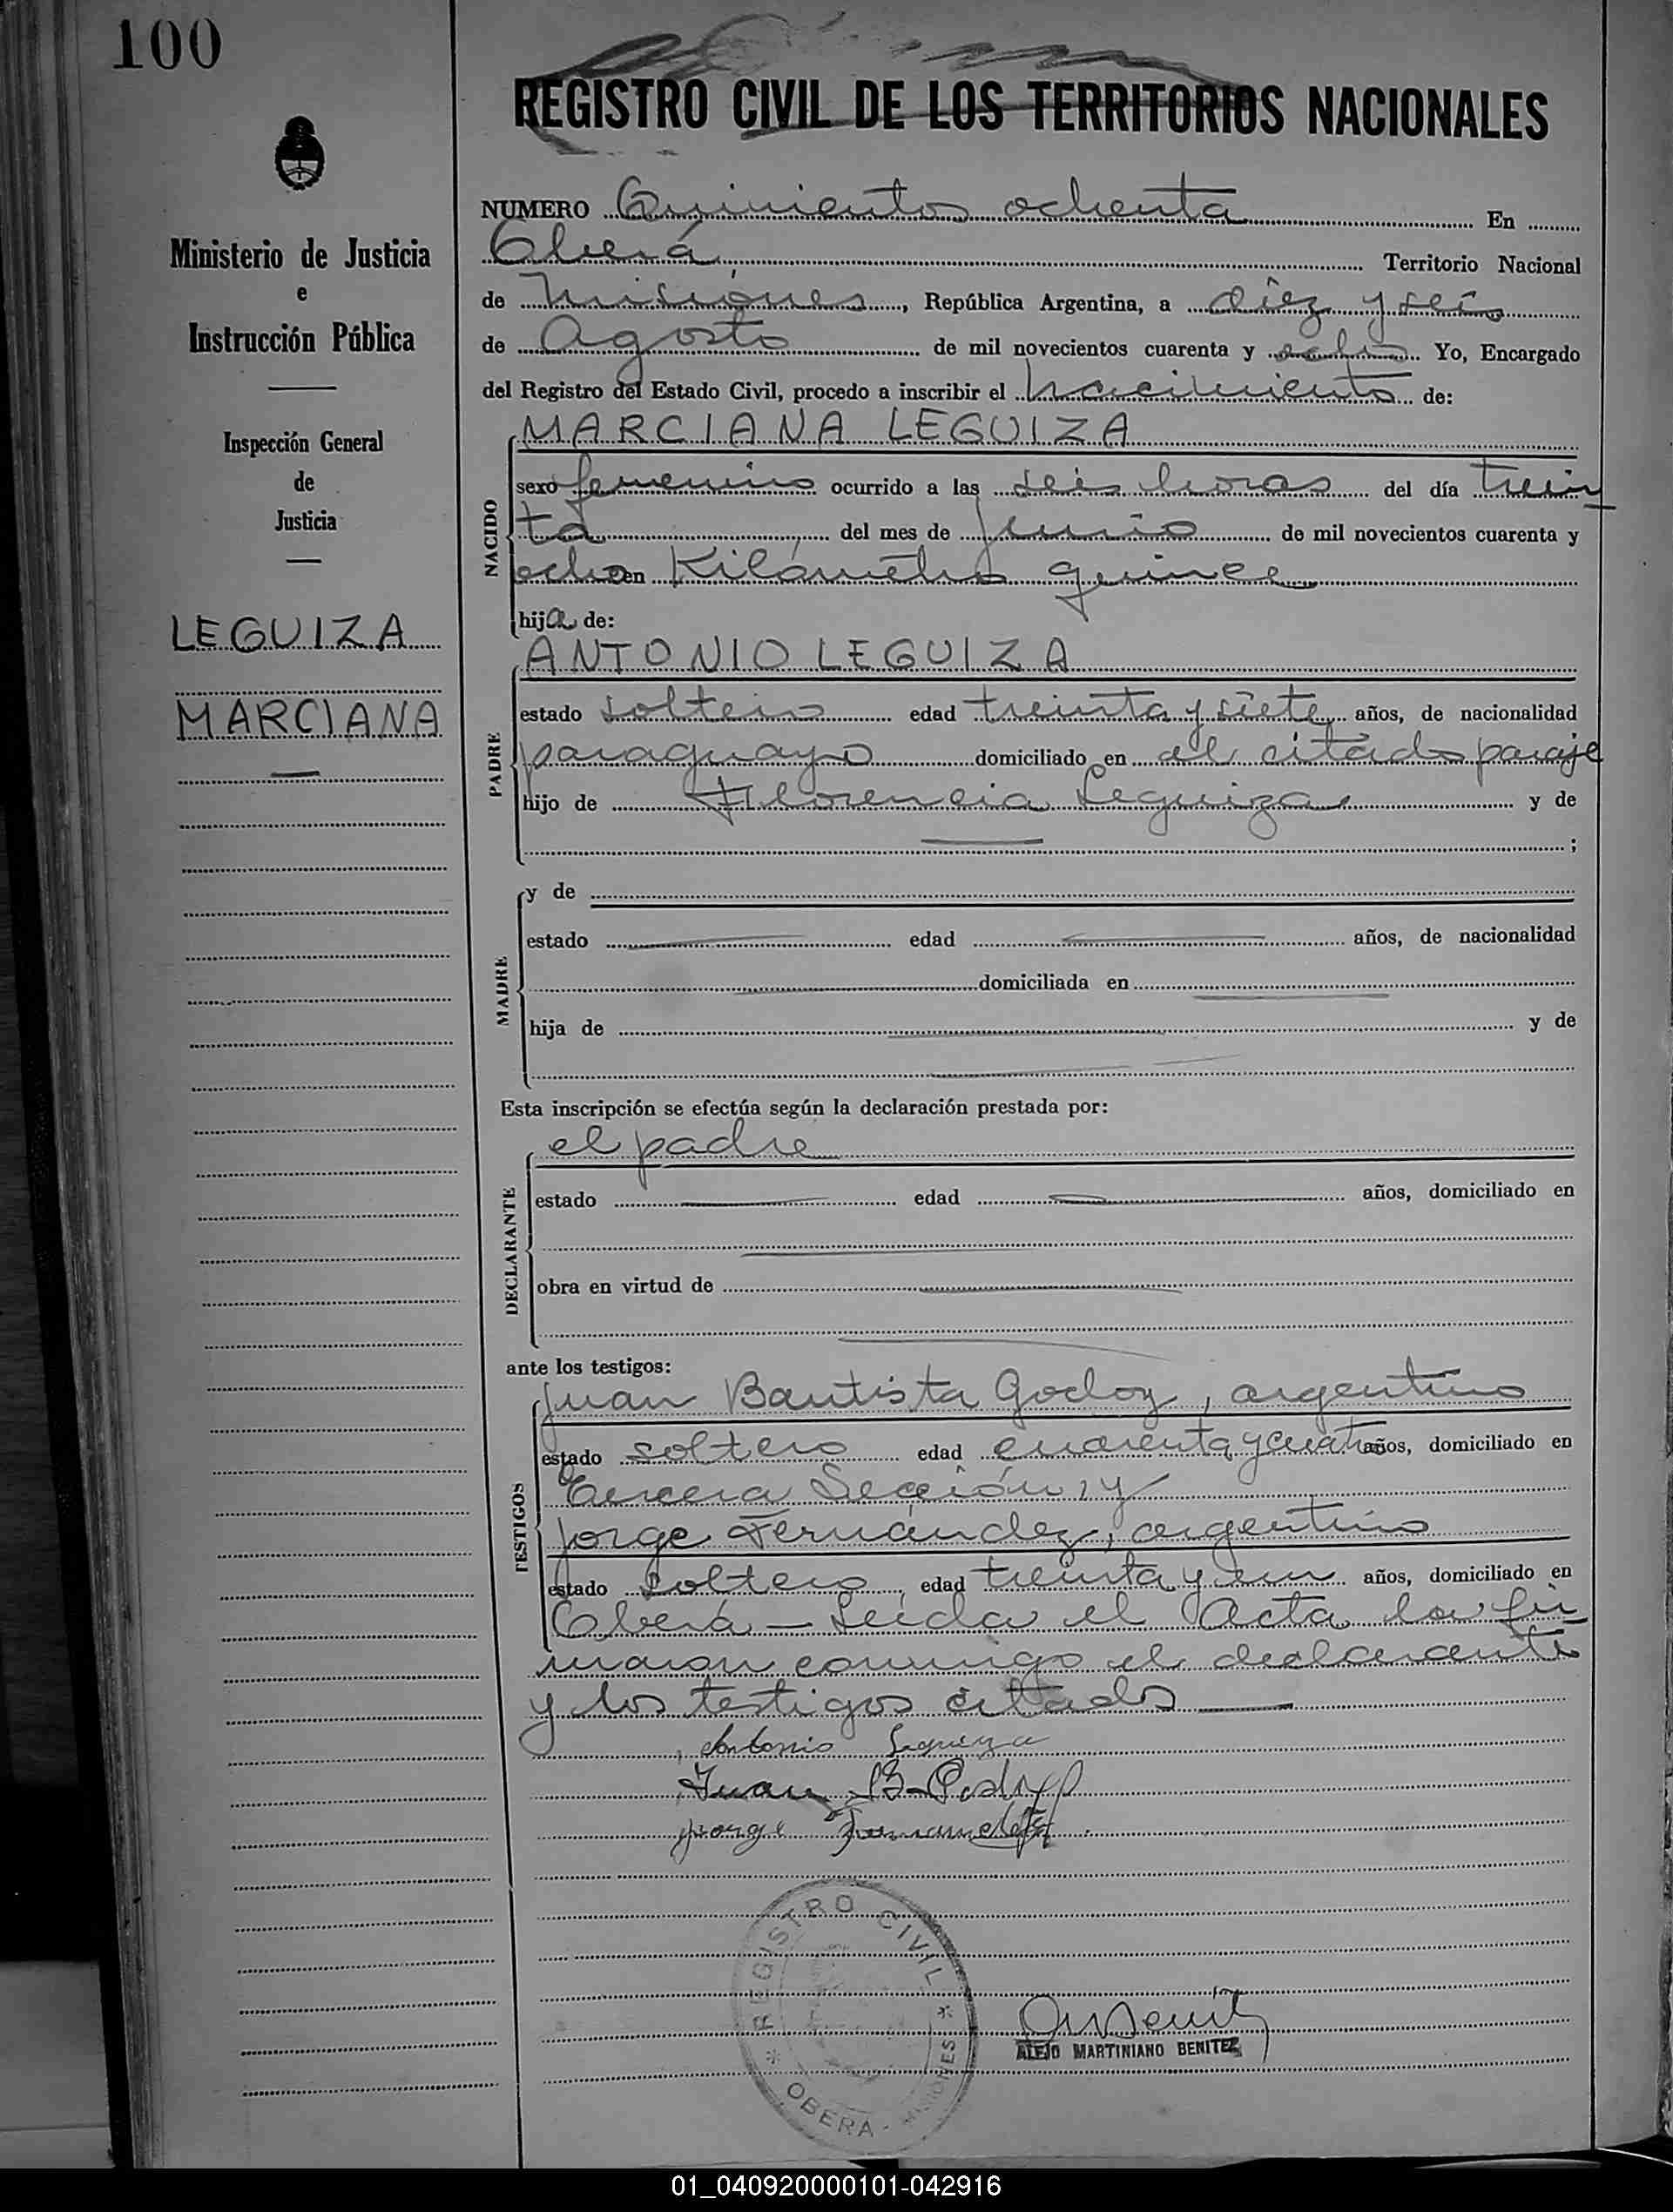 100
REGISTRO CIVIL DE LOS TERRITORIOS NACIONALES
Ministerio de Justicia
e
Instrucción Pública
Inspección General
de
Justicia
LEGUIZA
MARCIANA
NUMERO Quinientos ochenta En
Oberá Territorio Nacional
de Misiones, República Argentina, a diez y seis
de Agosto de mil novecientos cuarenta y ocho Yo, Encargado
del Registro del Estado Civil, procedo a inscribir el nacimiento de:
NACIDO
MARCIANA LEGUIZA
sexo femenino ocurrido a las seis horas del día trein
ta del mes de junio de mil novecientos cuarenta y
ocho en Kilómetro quince
hija de:
PADRE
ANTONIO LEGUIZA
estado soltero edad treinta y siete años, de nacionalidad
paraguayo domiciliado en el citado paraje
hijo de Florencia Leguiza y de
;
MADRE
y de
estado edad años, de nacionalidad
domiciliada en
hija de y de
Esta inscripción se efectúa según la declaración prestada por:
DECLARANTE
el padre
estado edad años, domiciliado en
obra en virtud de
ante los testigos:
TESTIGOS
Juan Bautista Godoy, argentino
estado soltero edad cuarenta y cuatro años, domiciliado en
Tercera Sección, y
Jorge Fernández, argentino
estado soltero, edad treinta y un años, domiciliado en
Oberá — Leída el Acta la fir
maron conmigo el declarante
y los testigos citados —
Antonio Legueza
Juan B.
Jorge Fernandez
REGISTRO CIVIL
* OBERA - MISIONES *
ALEJO MARTINIANO BENITEZ
01_040920000101-042916